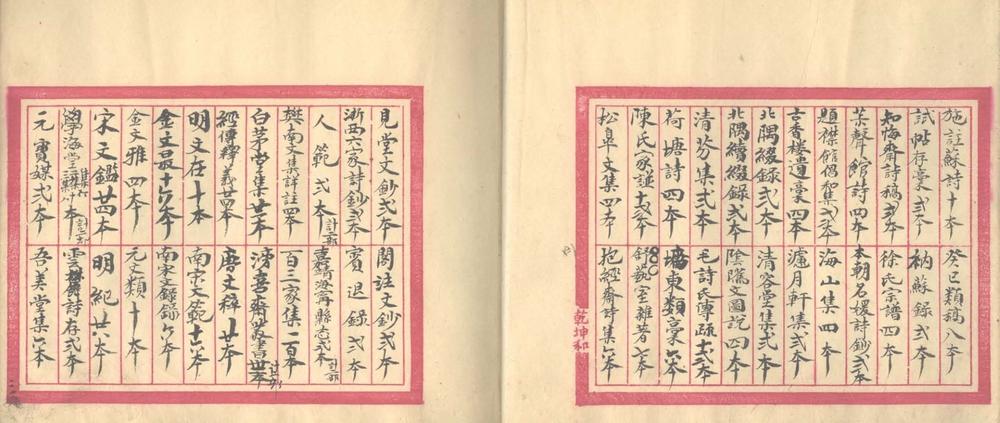 施註蘇詩十本
癸巳類稿八本
試帖存稾弍本
衲蘇錄弍本
知悔齋詩稿弍本
徐氏宗譜四本
葉聲館詩四本
本朝名媛詩鈔弍本
傑館偶集弍本
海山集四本
古香樓遺稾四本
濾月軒集弍本
北隅綴錄弍本
清谷堂集弍本
北隅續綴錄弍本
陰隲文圖説四本
清芬集弍本
毛詩氏傳疏十弍本
荷塘詩四本
墻東類稾六本
陳氏家譜十五本
舒藝室雜著七本
松臯文集四本
抱經齋詩集六本
乾坤和
見堂文鈔弍本
閱註文鈔弍本
浙西六家詩鈔弍本
賓退錄弍本
人範弍本 計二部
嘉靖海寧縣志弍本 計二部
樊南文集詳註四本
百三家集一百本
白茅堂集廿本
滂喜齋叢書卅本
經傳釋義廿四本
唐文粹廿本
明文在十本
南宋文範十六本
金文最十六本
南宋文錄錄六本
金文雅四本
元文類十本
宋文鑑廿四本
明紀廿八本
學海堂集
雲樵詩存弍本
元寶媒弍本
吾美堂集六本